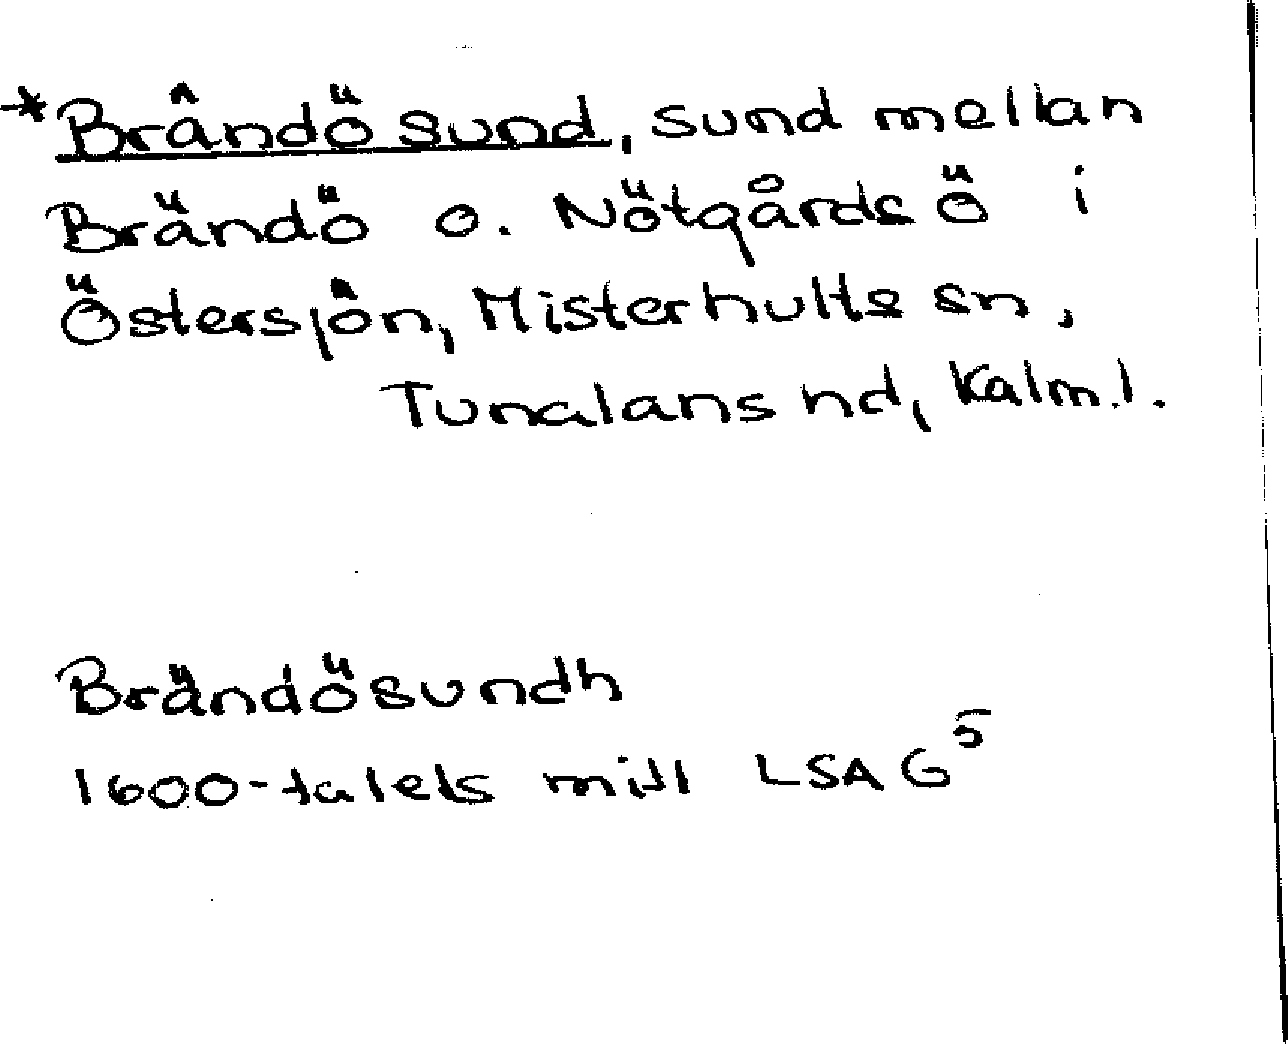 *Brändö sund, sund mellan
Brändö o. Nötgårdsö i
Östersjön, Misterhults sn,
Tunaläns hd, Kalm.l.
Brändösundh
1600-talets mitt LSA G5